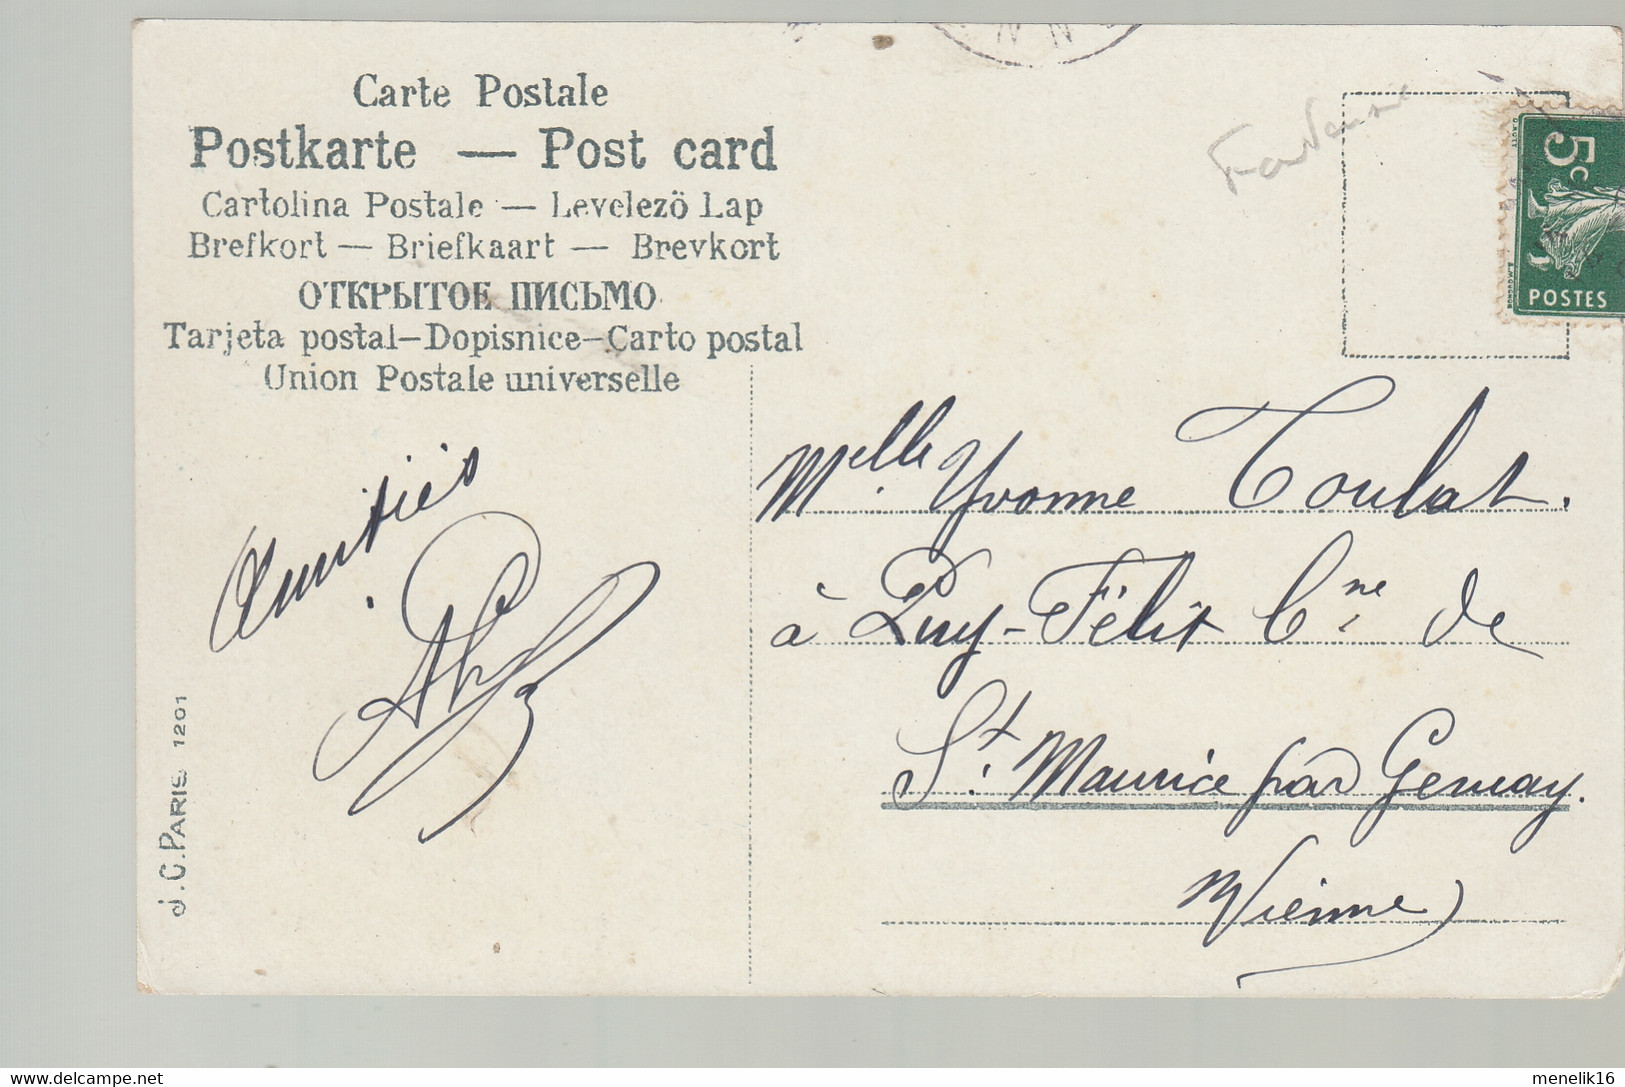 Carte Postale
Postkarte — Post card
Cartolina Postale — Levelezö Lap
Brefkort — Briefkaart — Brevkort
ОТКРЫТОЕ ПИСЬМО
Tarjeta postal—Dopisnice—Carto postal
Union Postale universelle
5c
POSTES
Amitiés
Melle Yvonne Toulat.
à Puy-Félix Cne de
St. Maurice par Gençay.
Vienne
J.C. PARIS 1201
delcampe.net
menelik16